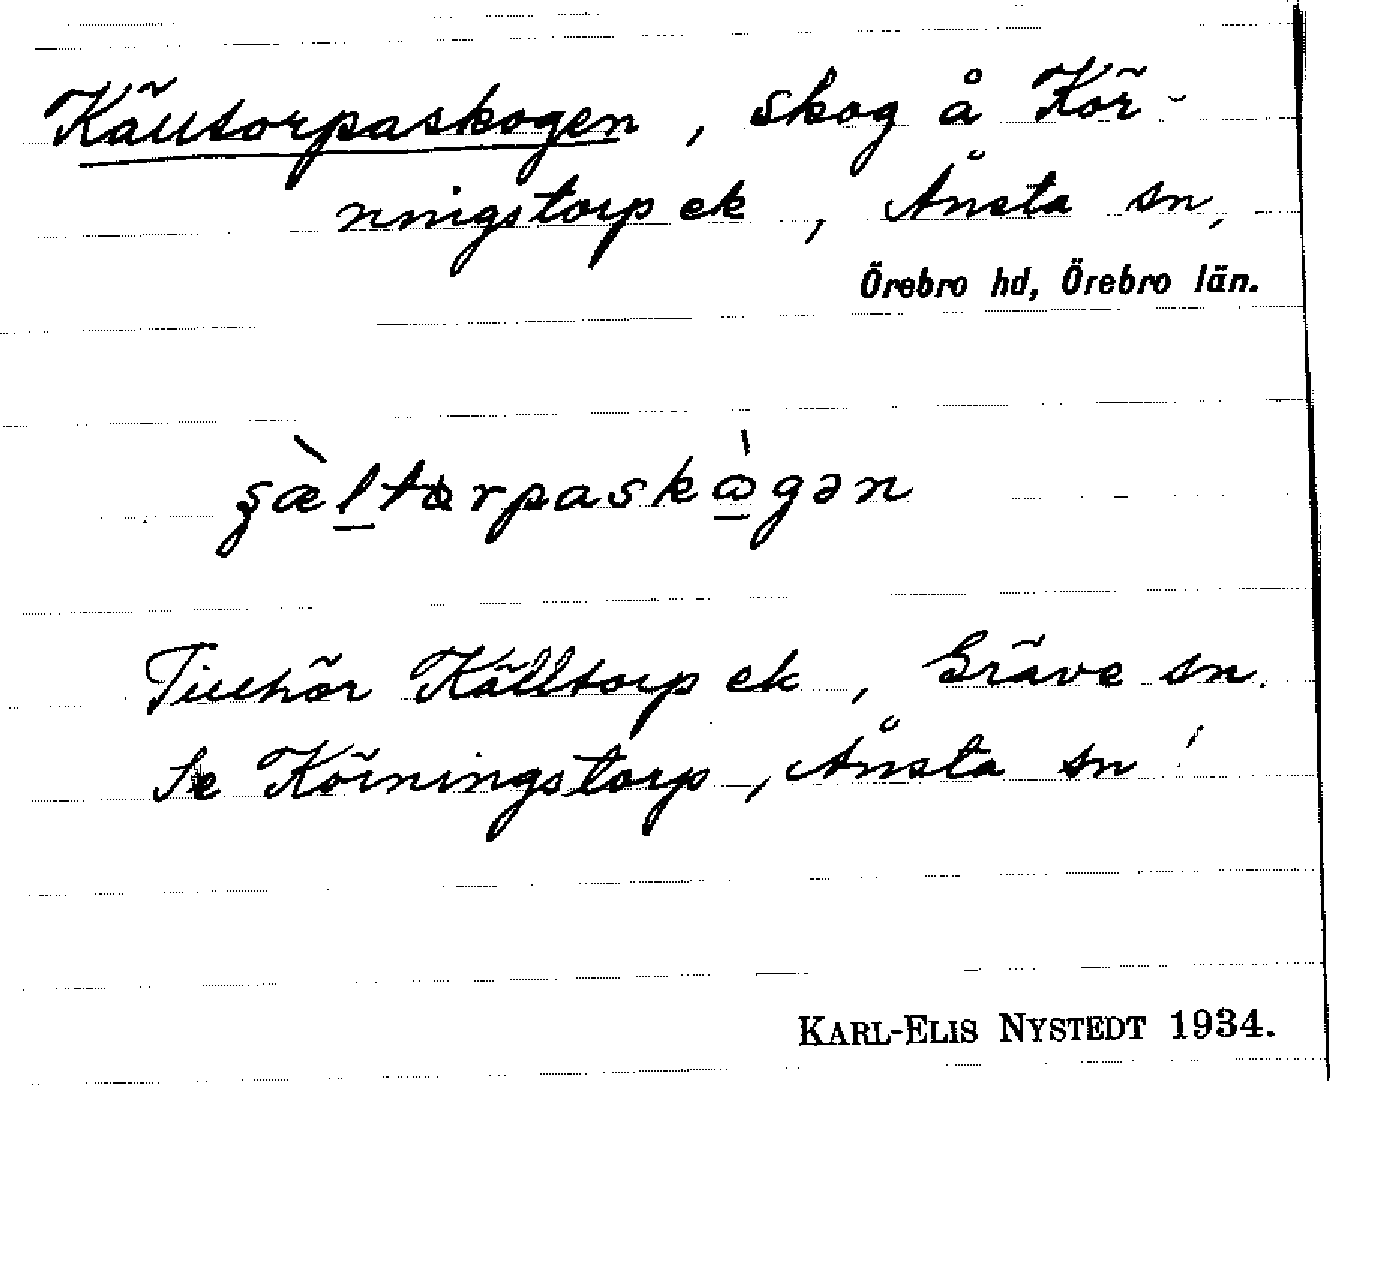 Källtorpaskogen, skog å Kör-
nnigstorp ek, Ånsta sn,
Örebro hd, Örebro län.
ʂæ̀l̠torpaskὼ̠gən
Tillhör Källtorp ek, Gräve sn.
Se Körningstorp, Ånsta sn!
KARL-ELIS NYSTEDT 1934.